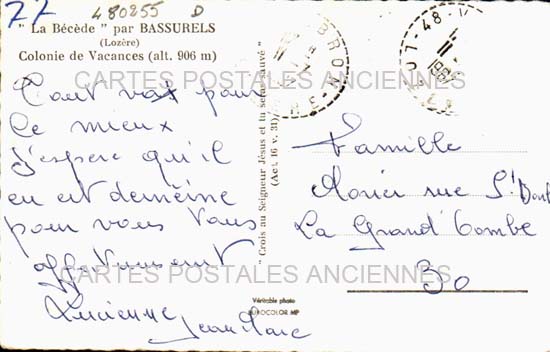 77
480255 D
" La Bécède " par BASSURELS
(Lozère)
Colonie de Vacances (alt. 906 m)
CARTES POSTALES ANCIENNES
Tout va pour
le mieux
J'espère qu'il
en est de même
pour vous tous
affectueusement
Lucienne Jean Marc
" Crois au Seigneur Jésus et tu seras sauvé "
(Act. 16 v. 31)
Véritable photo
EUROCOLOR MP
11 - 48
11
Famille
rue St
La Grand Combe
30
CARTES POSTALES ANCIENNES